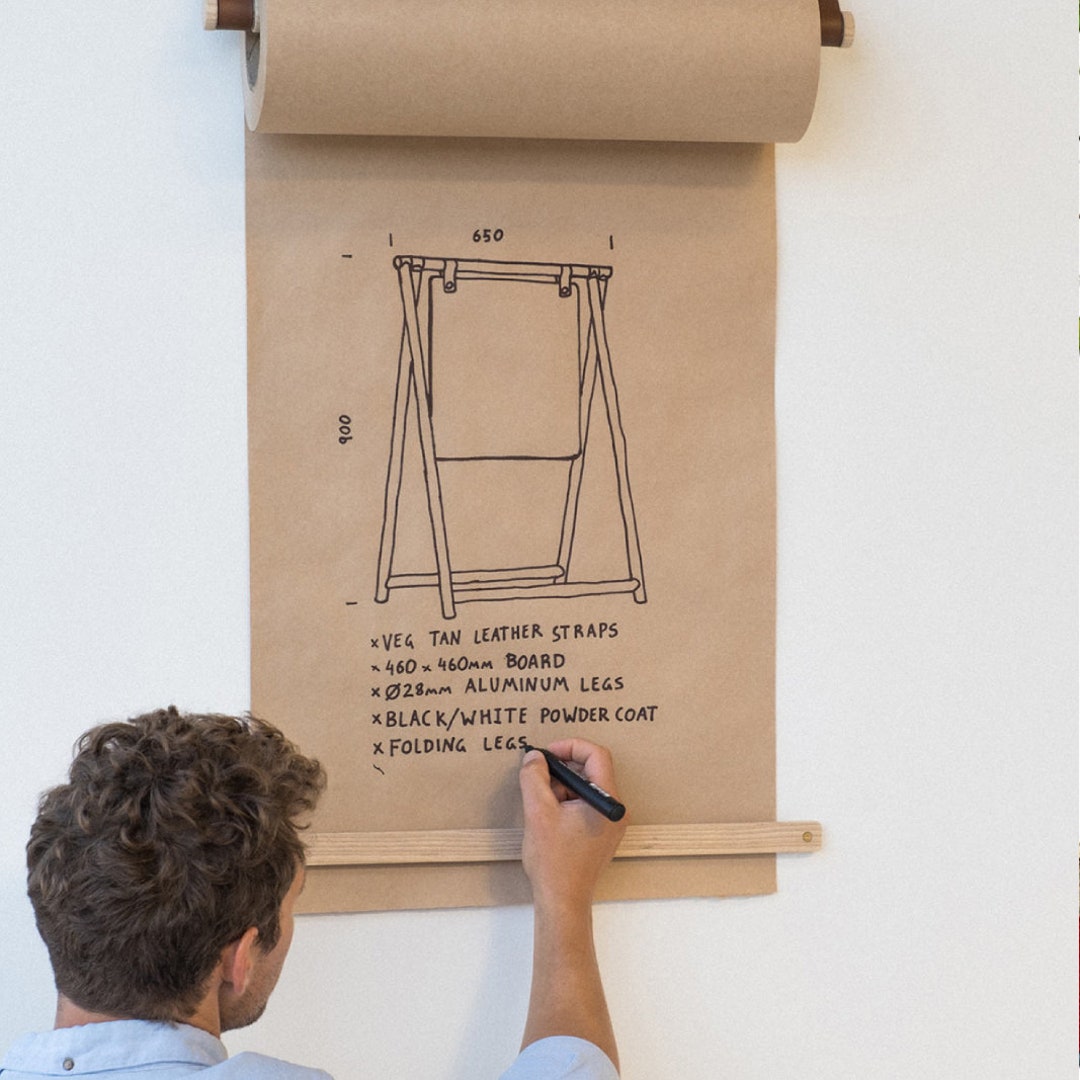 650
900
x VEG TAN LEATHER STRAPS
x 460 x 460mm BOARD
x Ø28mm ALUMINUM LEGS
x BLACK/WHITE POWDER COAT
x FOLDING LEGS